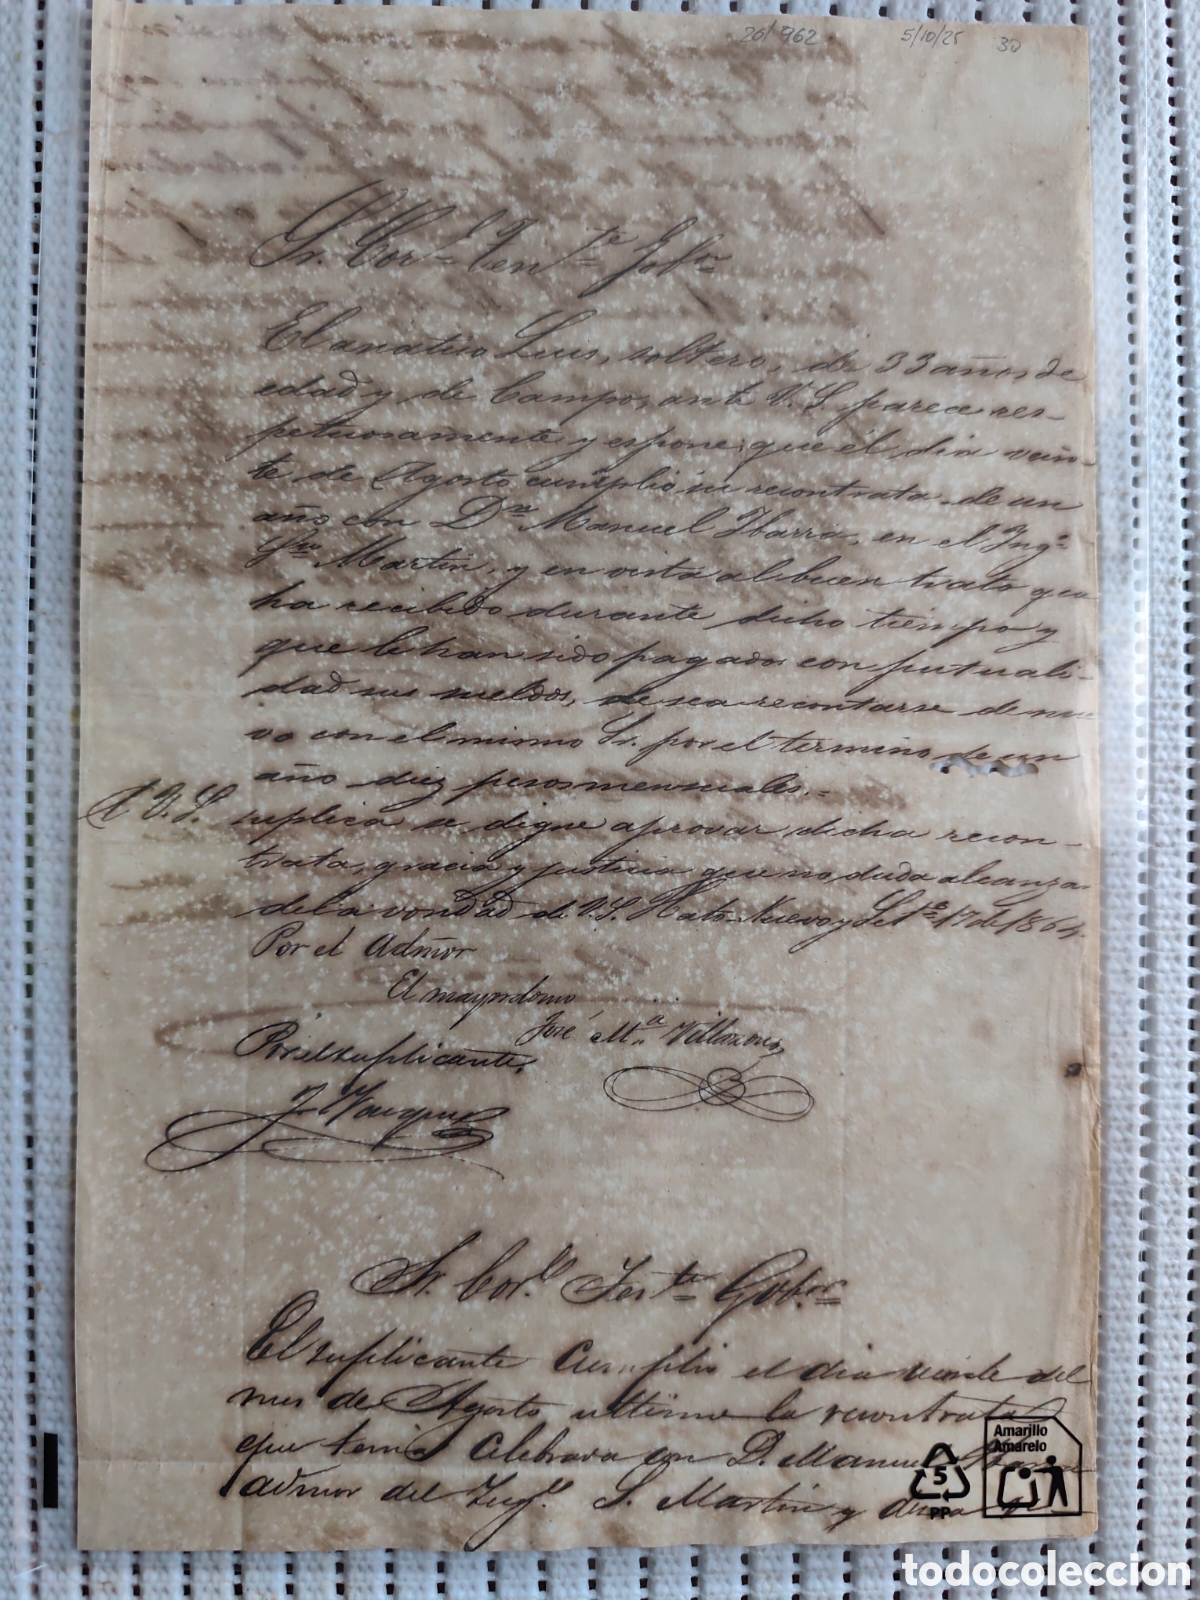 20/962 5/10/25 30
Sr. Cor.l Ten.te Gob.or
El asiatico Luis, soltero, de 33 años de
edad y de Campo, ante V.S. parece res-
petuosamente y espone; que el dia vein-
te de Agosto cumplió su recontrata de un
año con Dn Manuel Ibarra, en el Ing.o
Sn Martin, y en vista al buen trato que
ha recibido durante dicho tiempo y
que le han sido pagados con puntuali-
dad sus sueldos, desea recontarse de nue
vo con el mismo Sr. por el termino de un
año diez pesos mensuales.=
A V.S. suplica se digne aprovar dicha recon-
trata, gracia y justicia que no duda alcanzar
de la vondad de V.S. Hato-Nuevo y Set.e 17 de 1864.
Por el Admor
El mayordomo
José M.a Villazon
Por el suplicante,
J. Vazquez
Sr. Cor.l Ten.te Gob.or
El suplicante Cumplio el dia veinte del
mes de Agosto ultimo la recontrata
que tenia Celebrada con D. Manuel Ibarra
admor del Ing.o S. Martin y desea
Amarillo
Amarelo
5
PP
todocoleccion